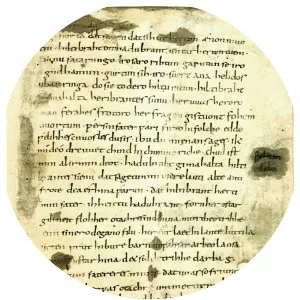 horta dat seggen dat sih urhettun ænon muo
tin hiltibraht enti hadubrant untar heriun tuem
sunufatarungo iro saro rihtun garutun se iro
gudhamun gurtun sih iro suert ana helidos
ubar ringa do sie to dero hiltu ritun hiltibraht
gimahalta heribrantes sunu her uuas heroro
man ferahes frotoro her fragen gistuont fohem
uuortum ƿer sin fater ƿari fireo in folche eddo
ƿelihhes cnuosles du sis ibu du mi enan sages ik
mi de odre uuet chind in chunincriche chud ist
min al irmindeot hadubraht gimahalta hilti
brantes sunu dat sagetun mi usere liuti alte anti
frote dea erhina ƿarun dat hiltibrant hætti
min fater ih heittu hadubrant forn her ostar
gihueit floh her otachres nid hina miti theotrihhe
enti sinero degano filu her furlaet in lante luttila
sitten prut in bure barn unƿahsan arbeo laosa
ostar hina det sid detrihhe darba gi
stuontum fateres mines dat uuas so friunt
man her ƿas otachre ummet